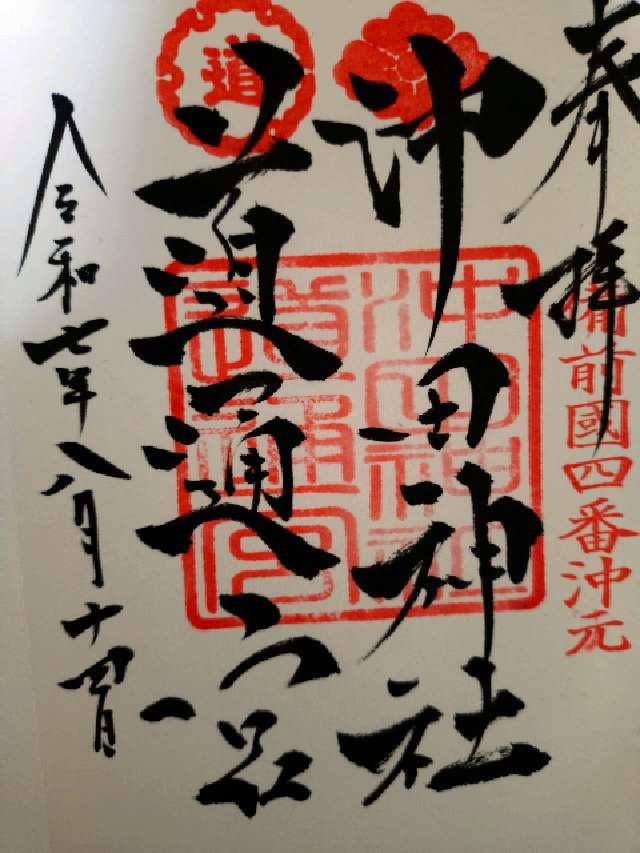 奉拝
備前國四番沖元
沖田神社
道通宮
道
沖田神社
道通宮
令和七年八月十四日